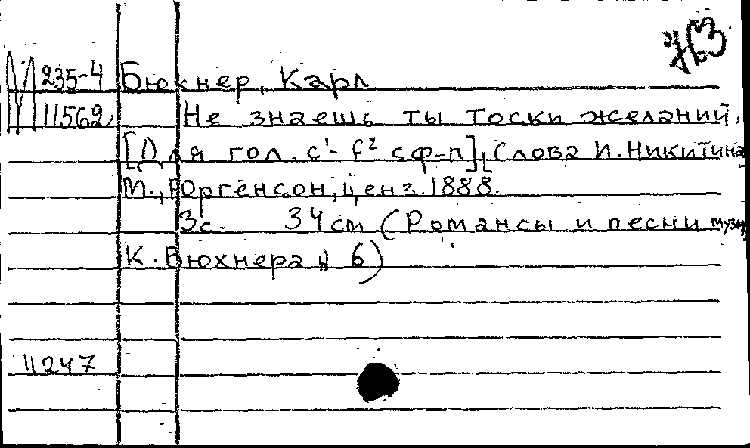 763
М 235-4 Бюхнер, Карл
11562 Не знаешь ты тоски желаний.
[Для гол. c¹- f² с ф-п], Слова И. Никитина
М., Юргенсон, ценз. 1888.
3с. 34см (Романсы и песни музыка
К. Бюхнера № 6)
11247